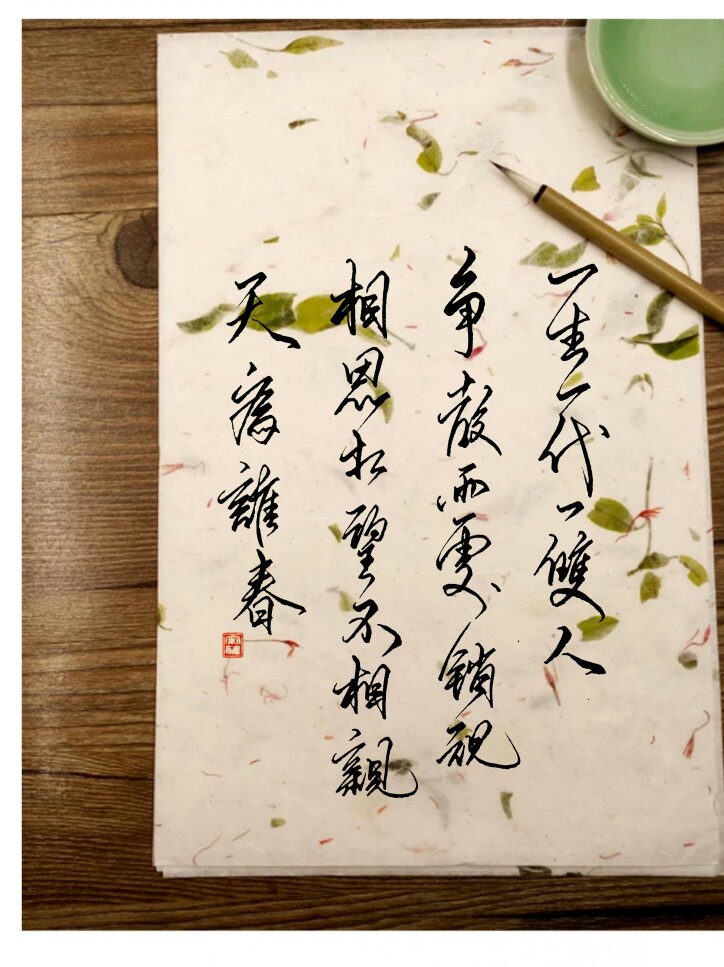 一生一代一雙人
爭教兩處銷魂
相思相望不相親
天為誰春